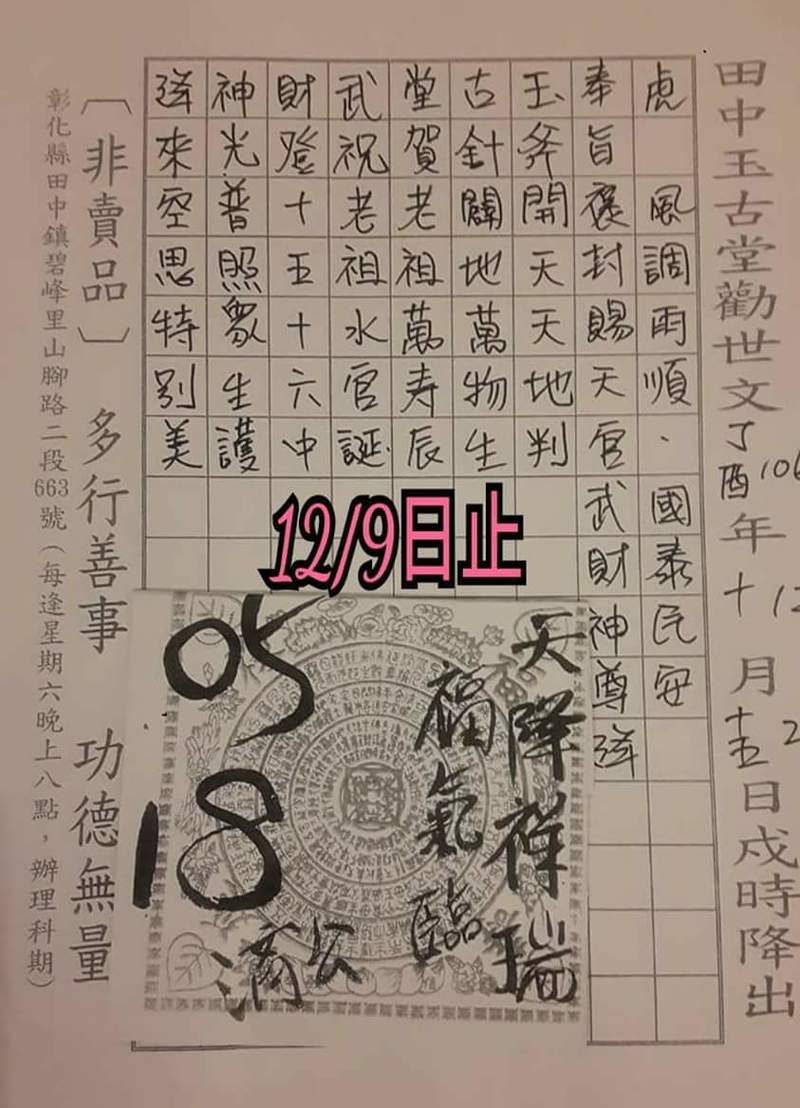 田中玉古堂勸世文丁酉106年十12月十五2日戌時降出
虎 風調雨順、國泰民安
奉旨褒封賜天官武財神尊 降
玉斧開天天地判
古針闢地萬物生
堂賀老祖萬寿辰
武祝老祖水官誕
財登十五十六中
神光普照眾生護
降來空思特別美
12/9日止
天降祥瑞
福氣臨
05
18
濟公
〔非賣品〕 多行善事 功德無量
彰化縣田中鎮碧峰里山腳路二段663號(每逢星期六晚上八點，辦理科期)